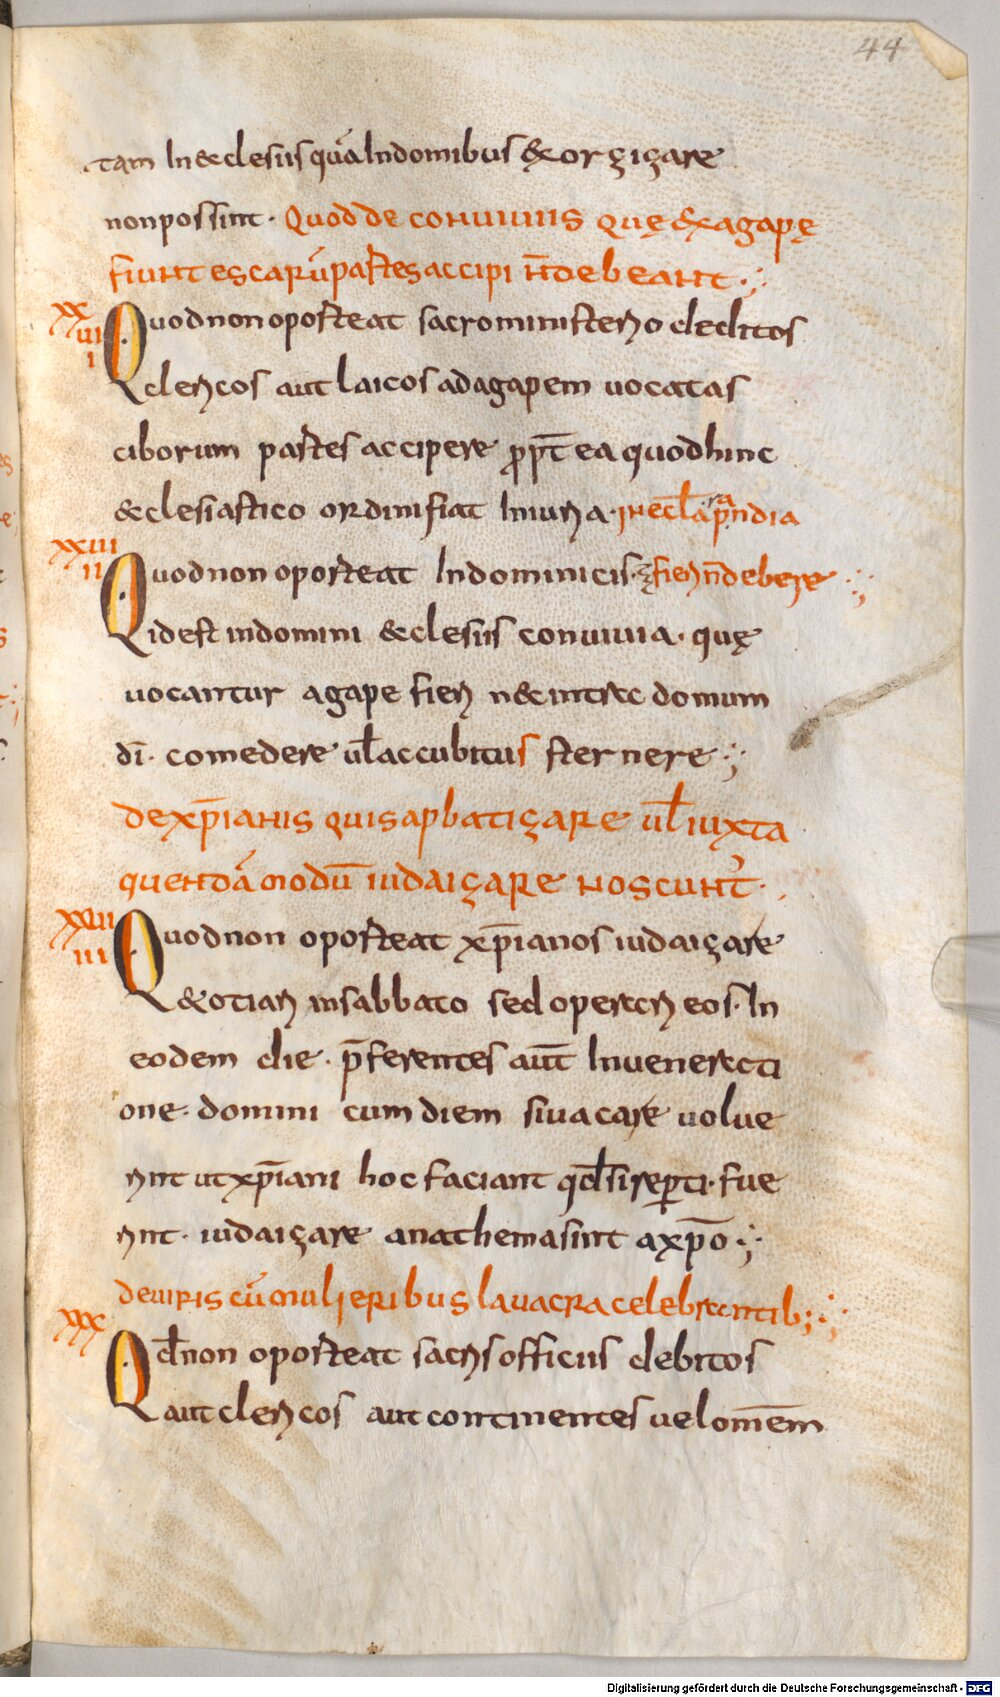 44
tam In &clesiis quā Indomibus & orçiçare
non possint · Quod de conuiuiis quę & xagapę
fiunt escarū partes accipi n̄ debeant
xx
uii
i
Quod non oporteat sacro ministerio deditos
clericos aut laicos ad agapem uocatas
ciborum partes accipere ꝓpt̄ ea quod hinc
&clesiastico ordini fiat Iniuria · In eccl̄a prandia
xxuii
ii
Quod non oporteat In dominicis · fieri n̄ debere
id est in domini &clesiis conuiuia · quę
uocantur agape fieri n& intrac domum
dī · comedere ul̄ accubitus sternere
de xp̄ianis qui sapbatiçare ul̄ iuxta
quendā modū iudaiçare noscunt
xxuii
iii
Quod non oporteat xp̄ianos iudaiçare
& otiari in sabbato sed operari eos · In
eodem die · p̄ferentes aut̄ In ueneracti
one · domini cum diem si uacare uolue
rint ut xp̄iani hoc faciant qd̄ si reperti · fue
rint · iudaiçare anathema sint a xp̄o
de uiris cū mulieribus lauacra celebrantib;
xxx
Qd̄ non oporteat sacris officiis debitos
aut clericos aut continentes uel omēm
Digitalisierung gefördert durch die Deutsche Forschungsgemeinschaft - DFG